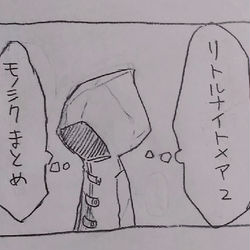 リトルナイトメア2
モノミクまとめ